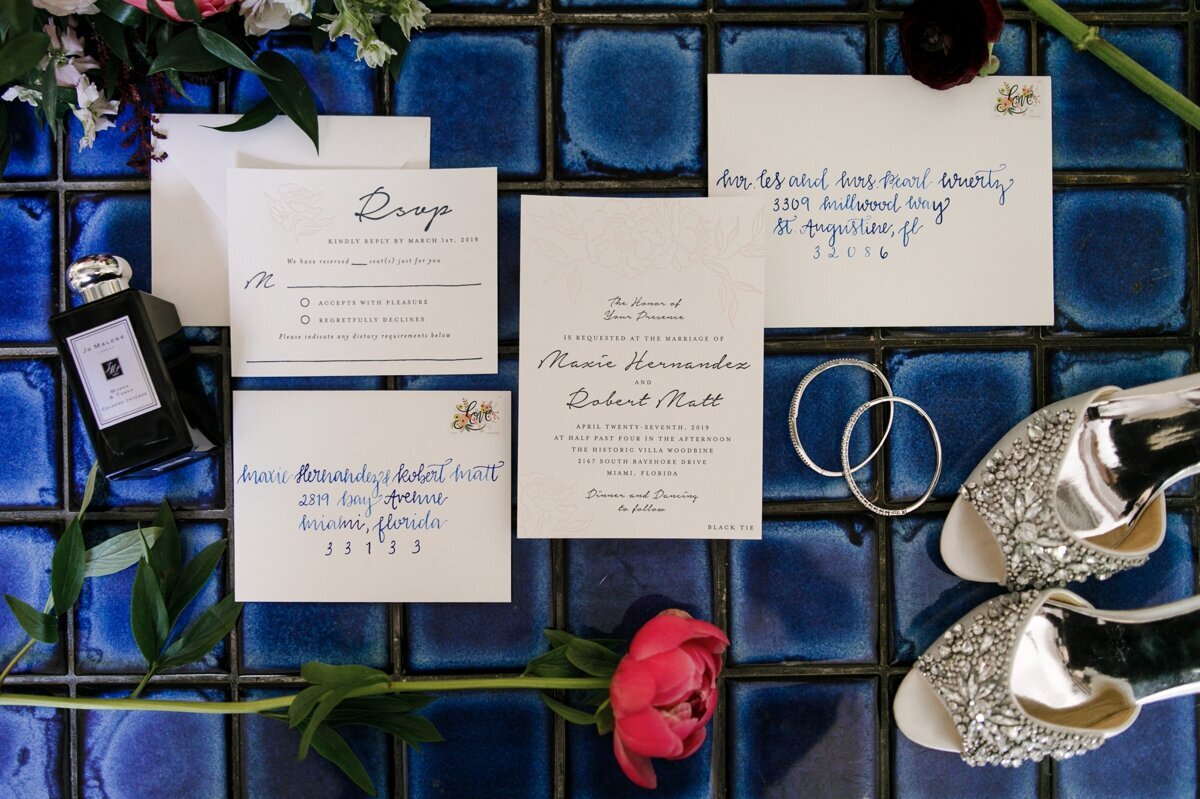 Rsvp
KINDLY REPLY BY MARCH 1ST, 2019
We have reserved ___ seat(s) just for you
M
ACCEPTS WITH PLEASURE
REGRETFULLY DECLINES
Please indicate any dietary requirements below
JO MALONE
LONDON
MYRRH
& TONKA
COLOGNE INTENSE
Love
Maxie Hernandez & Robert Matt
2819 Day Avenue
Miami, Florida
33133
The Honor of
Your Presence
IS REQUESTED AT THE MARRIAGE OF
Maxie Hernandez
AND
Robert Matt
APRIL TWENTY-SEVENTH, 2019
AT HALF PAST FOUR IN THE AFTERNOON
THE HISTORIC VILLA WOODBINE
2167 SOUTH BAYSHORE DRIVE
MIAMI, FLORIDA
Dinner and Dancing
to follow
BLACK TIE
Love
Mr. Les and Mrs. Pearl Wuertz
3309 Millwood Way
St. Augustine, fl
32086